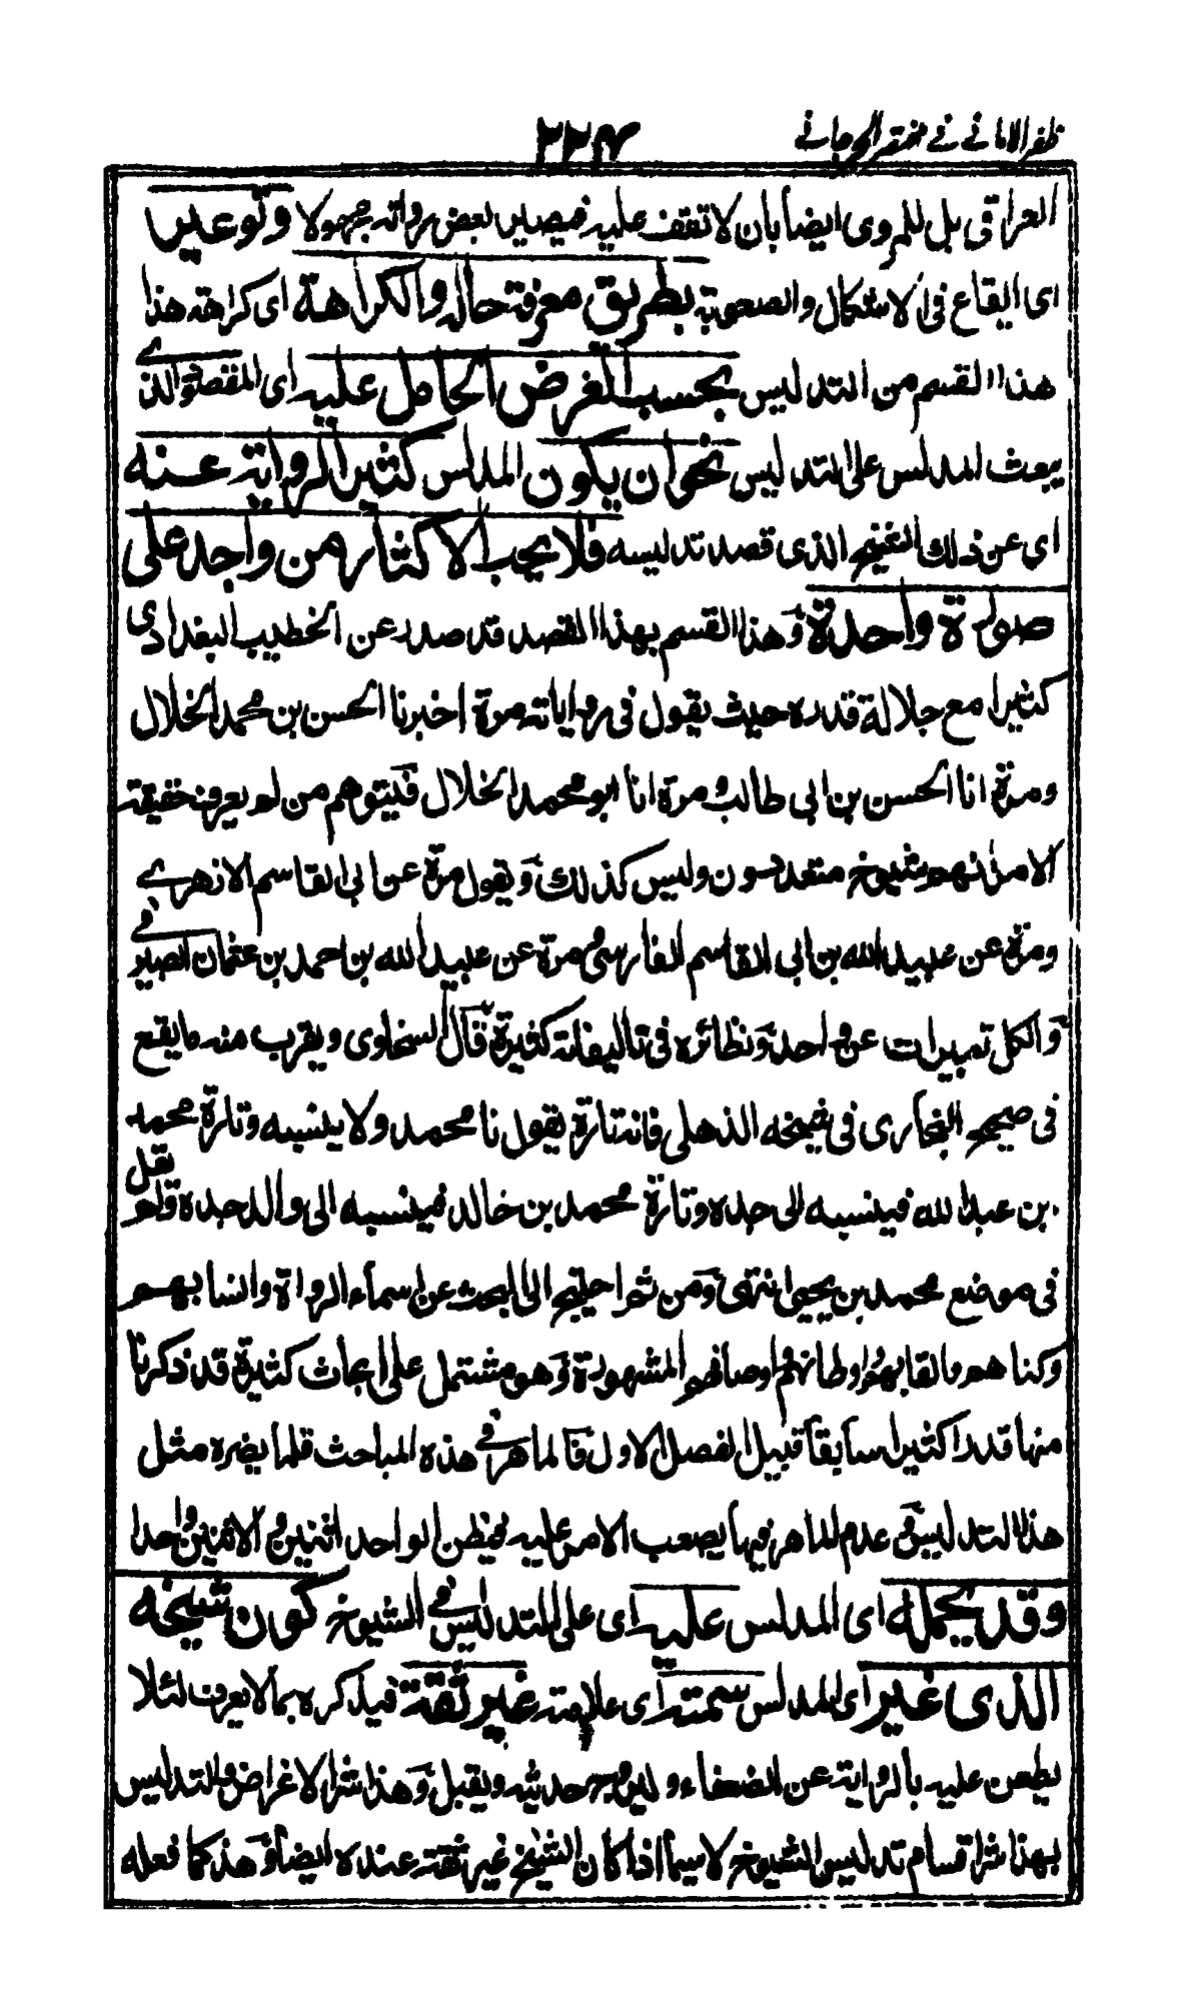 ظفر الامانے فے مختصر الجرجانے
٢٢٤
العراقى بل للمروى ايضا بان لا تقف عليه فيصير بعض رواته مجهولا وتوعير
اى ايقاع فى الاشكال والصعوبة بطريق معرفة حاله والكراهة اى كراهة هذا
هذا القسم من التدليس بحسب الغرض الحامل عليه اى المقصود الذے
يبعث المدلس على التدليس نحو ان يكون المدلس كثير الرواية عنه
اى عن ذلك الشيخ الذى قصد تدليسه فلا يحب الاكثار من واحد على
صورة واحدة وهذا القسم بهذا القصد قد صدر عن الخطيب البغدادى
كثيرا مع جلالة قدره حيث يقول فى رواياته مرة اخبرنا الحسن بن محمد الخلال
ومرة انا الحسن بن ابى طالب ومرة انا ابو محمد الخلال فيتوهم من لم يعرف حقيقة
الامر انهم شيوخ متعددون وليس كذلك ويقول مرة عن ابى القاسم الازهرے
ومرة عن عبيد الله بن ابى القاسم الفارسى ومرة عن عبيد الله بن احمد بن عثمان الصيرفے
والكل تعبيرات عن واحد ونظائره فى تاليفاته كثيرة قال السخاوى ويقرب منه ما يقع
فى صحيح البخارى فى شيخه الذهلى فانه تارة يقول نا محمد ولا ينسبه وتارة محمد
بن عبد الله فينسبه الى جده وتارة محمد بن خالد فينسبه الى والد جده ولم يقل
فى موضع محمد بن يحيى انتهى ومن ثم احتيج الى البحث عن اسماء الرواة وانسابهم
وكناهم والقابهم واوطانهم واوصافهم المشهورة وهو مشتمل على ابحاث كثيرة قد ذكرنا
منها قدرا كثيرا سابقا قبيل الفصل الاول فالماهر فى هذه المباحث قلما يضره مثل
هذا التدليس وعدم الماهر فيها يصعب الامر عليه فيظن الواحد اثنين والاثنين واحدا
وقد يحمله اى المدلس عليه اى على التدليس فى الشيوخ كون شيخه
الذى غير اى المدلس سمته اى علامته غير ثقة فيذكره بما لا يعرف لئلا
يطعن عليه بالرواية عن الضعفاء و حديثه ويقبل وهذا شر الاغراض والتدليس
بهذا شر اقسام تدليس الشيوخ لا سيما اذا كان الشيخ غير ثقة عنده ايضا وهذ كما فعله